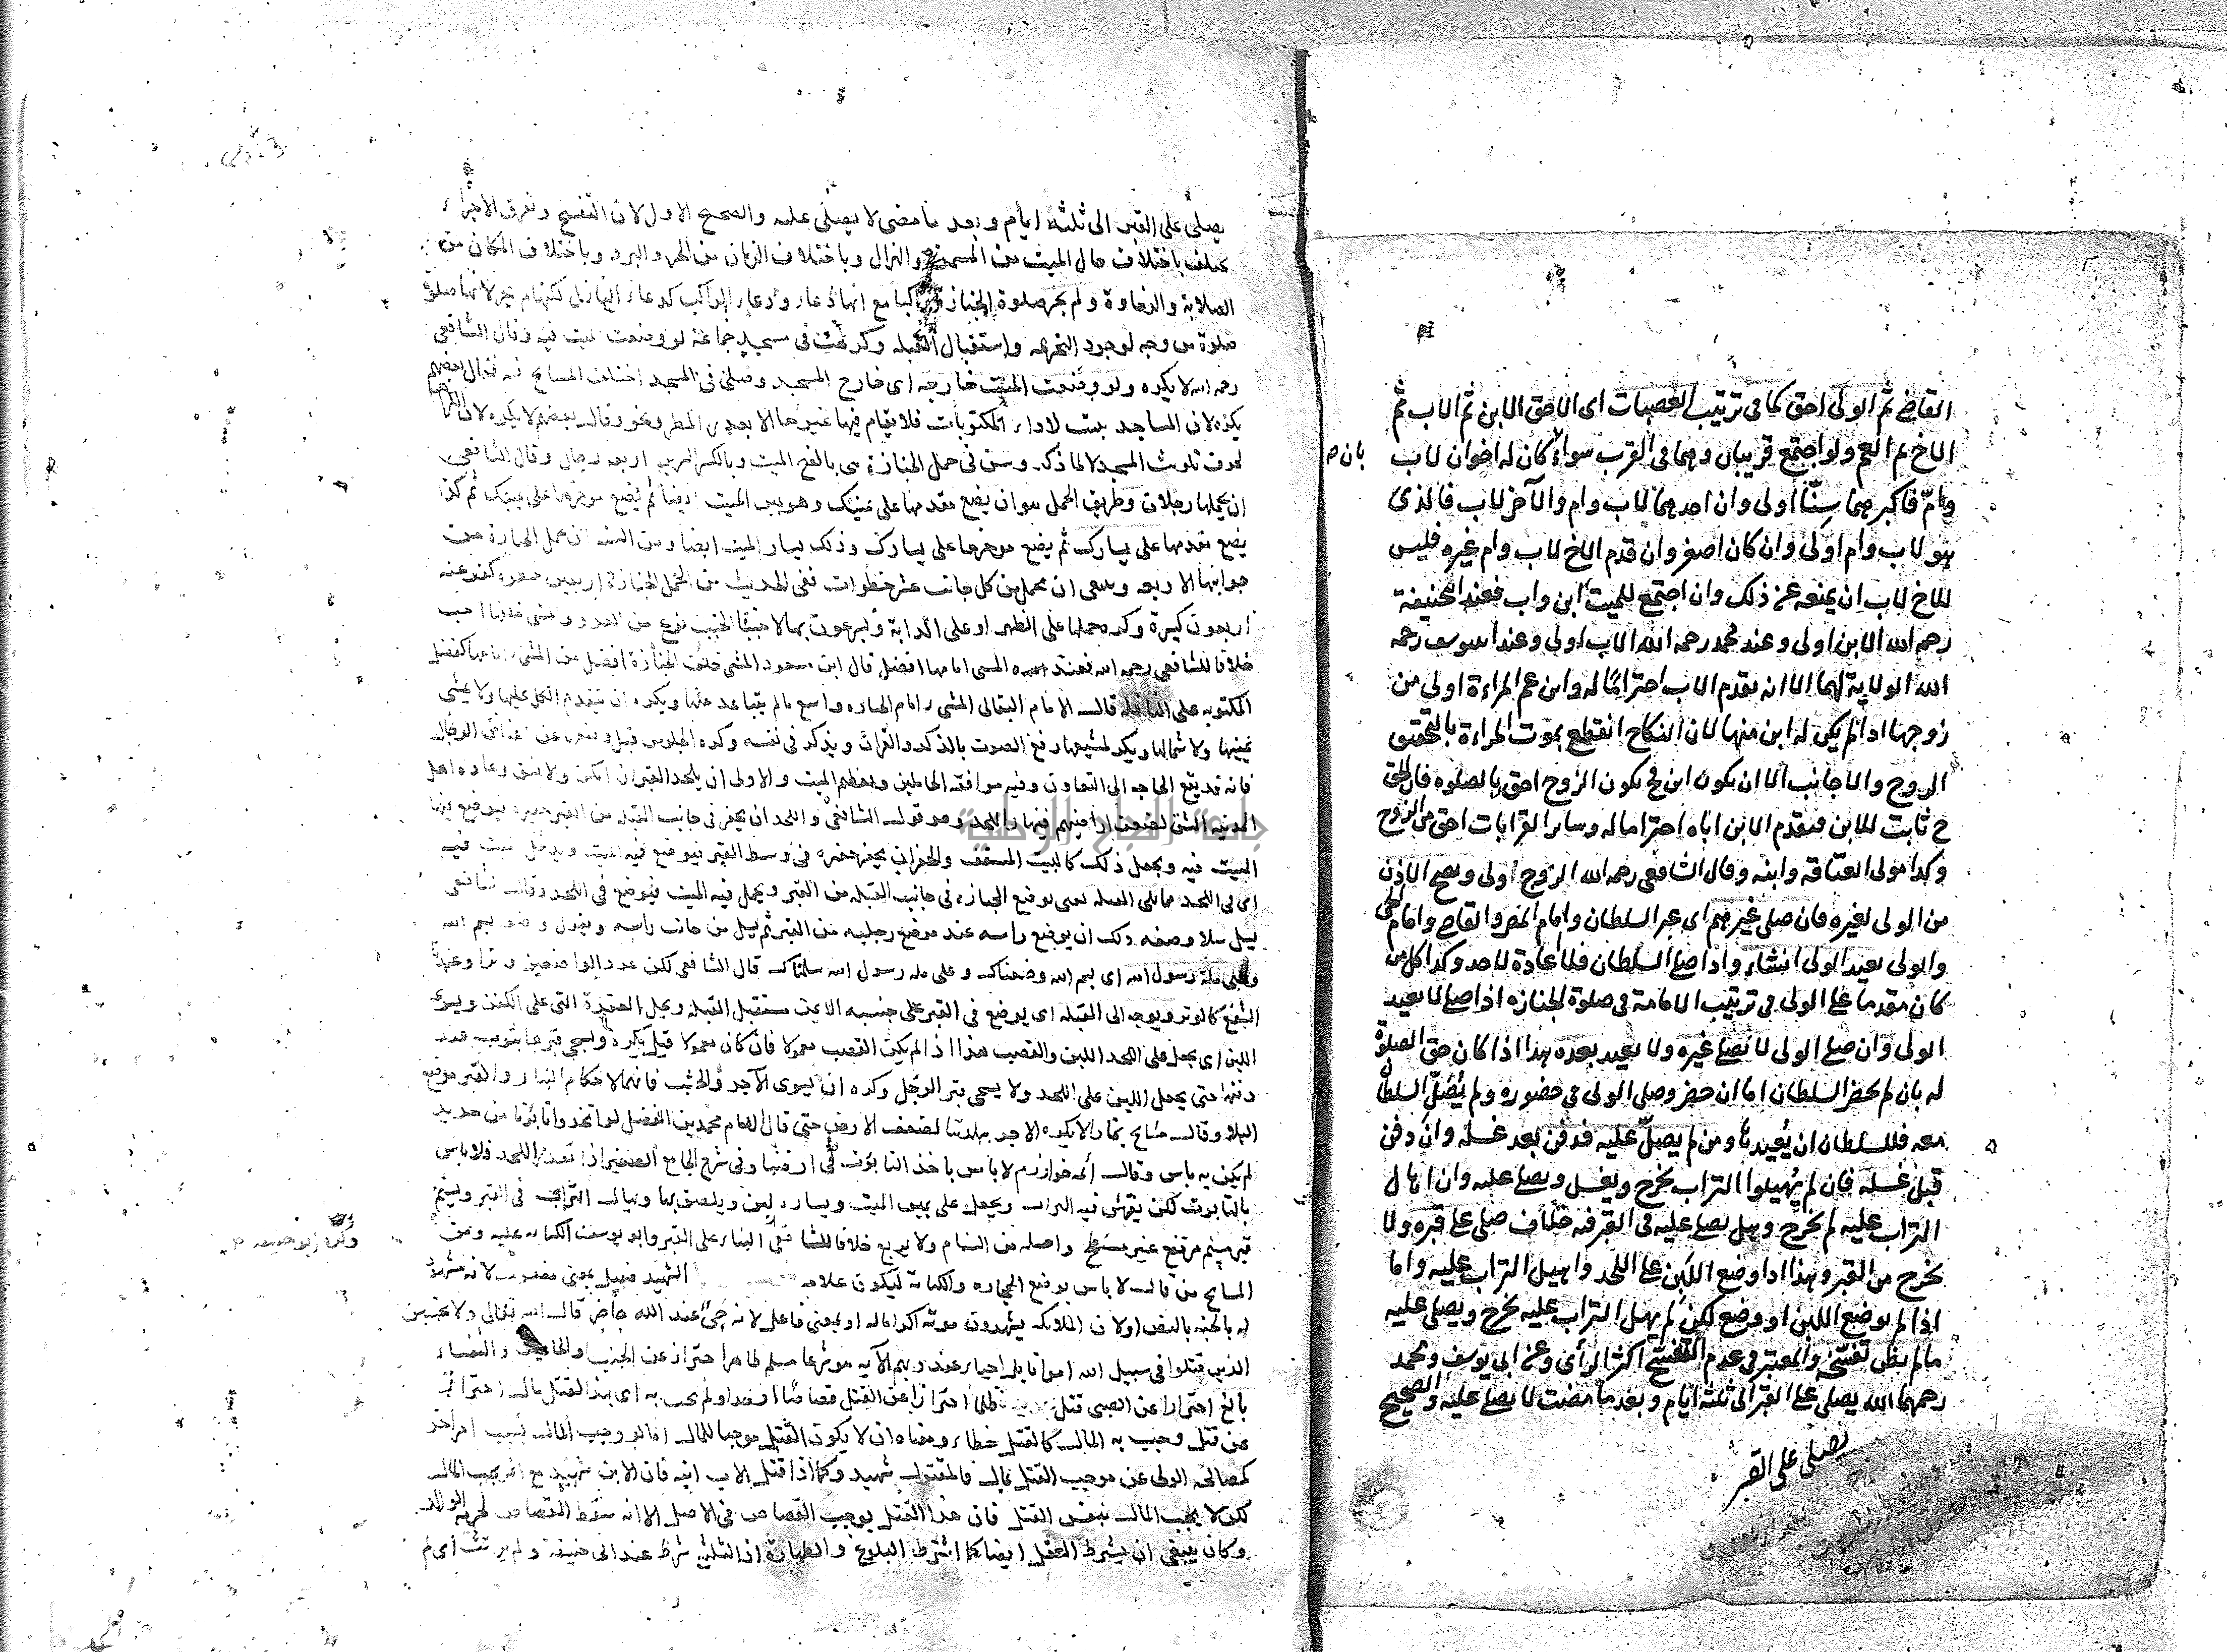 القاضي ثم الولي احق كما في ترتيب العصبات اى الاحق الابن ثم الاب ثم
الاخ ثم العم ولو اجتمع قريبان وهما في القرب سواء كان له اخوان لاب
بان
وامّ فاكبرهما سِنّاً اولى وان احدهما لاب وام والآخر لاب فالذى
هو لاب وام اولى وان كان اصغر وان قدم الاخ لاب وام غيره فليس
للاخ لاب ان يمنعه عن ذلك وان اجتمع للميت ابن واب فعند ابيحنيفة
رحمه الله الابن اولى وعند محمد رحمه الله الاب اولى وعند ابى يوسف رحمه
الله الولاية لهما الا انه يقدم الاب احتراما له وابن عم المراءة اولى من
زوجها اذا لم يكن له ابن منها لان النكاح انقطع بموت المراءة بالتحقيق
الزوج والاجانب الا ان يكون ابن فح يكون الزوج احق بالصلوه فان الحق
ح ثابت للابن فيقدم الابن اباه احتراما له وسائر القرابات احق من الزوج
وكذا مولى العتاقه وابنه وقال الشافعي رحمه الله الزوج اولى ويصح الاذن
من الولى لغيره فان صلى غيرهم اى غير السلطان وامام المصر والقاضي وامام الحى
والولى يعيد الولى ان شاء واذا صلى السلطان فلا اعادة لاحد وكذا كل من
كان مقدما على الولى في ترتيب الامامة في صلوة الجنازه اذا صلى لا يعيد
الولى وان صلى الولى لا يصلى غيره ولا يعيد بعده هذا اذا كان حق الصلوة
له بان لم يحضر السلطان اما ان حضر وصلى الولى في حضوره ولم يُصَلّ السلطان
معه فللسلطان ان يُعيدها ومن لم يصلّ عليه فدفن بعد غسله وان دفن
قبل غسله فان لم يُهيلوا التراب يخرج ويغسل ويصلى عليه وان اهال
التراب عليه لم يخرج وهل يصلى عليه في القبر فيه خلاف صلى على قبره ولا
يخرج من القبر وهذا اذا وضع اللبن على اللحد واهيل التراب عليه واما
اذا لم يوضع اللبن او وضع لكن لم يهل التراب عليه يخرج ويصلى عليه
ما لم يظن تفسّخه والمعتبر في عدم التفسّخ اكثر الرأى وعن ابى يوسف ومحمد
رحمهما الله يصلى على القبر الى ثلثة ايام وبعد ما مضت لا يصلى عليه والصحيح
يصلى على القبر
يصلى على القبر الى ثلثه ايام وبعد ما مضى لا يصلى عليه والصحيح الاول لان التفسخ وتفرق الاجزاء
يختلف باختلاف حال الميت من السمن والهزال وباختلاف الزمان من الحر والبرد وباختلاف المكان من
الصلابة والرخاوة ولم يجز صلوة الجنازة راكبا مع انها دعاء ودعاء الراكب كدعاء النازل لكنها لم يجز لانها صلوة
صلوة من وجه لوجود التحريمه واستقبال القبله وكرهت في مسجد جماعة لو وضعت الميت فيه وقال الشافعي
رحمه الله لا يكره ولو وضعت الميت خارجه اى خارج المسجد وصلى في المسجد اختلف المشايخ فيه فقال بعضهم
يكره لان المساجد بنيت لاداء المكتوبات فلا يقام فيها غيرها الا بعذر المطر ونحو وقال بعضهم لا يكره لان
لخوف تلوث المسجد لا لما ذكر وسن في حمل الجنازة هى بالفتح الميت وبالكسر السرير اربعه رجال وقال الشافعي
ان يحملها رجلان وطريق الحمل هو ان يضع مقدمها على يمينك وهو يمين الميت ايضا ثم يضع مؤخرها على يمينك ثم كذا
يضع مقدمها على يسارك ثم يضع مؤخرها على يسارك وذلك يسار الميت ايضا ومن السنه ان يحمل الجنازة من
جوانبها الاربعه وينبغى ان يحمل من كل جانب عشر خطوات ففى الحديث من حمل الجنازة اربعين خطوه كفر عنه
اربعون كبيرة وكره حملها على الظهر او على الدابة ويسرعون بها لا خببا الخبب نوع من العدو والمشى خلفها احب
خلافا للشافعي رحمه الله فعنده المشى امامها افضل قال ابن مسعود المشى خلف الجنازة افضل من المشى امامها كفضل
المكتوبه على النافلة قال الامام البقالي المشى امام الجنازه واسع ما لم يتباعد عنها ويكره ان يتقدم الكل عليها ولا يمشى
يمينها ولا شمالها ويكره لمشيعها رفع الصوت بالذكر والقران ويذكر في نفسه وكره الجلوس قبل وضعها عن اعناق الرجال
فانه قد يقع الحاجه الى التعاون وفيه موافقة الحاملين وتعظيم الميت والاولى ان يلحد القبر ان امكن ولا يشق وعادة اهل
المدينه الشق لضعف اراضيهم فيها واللحد وهو قول الشافعي واللحد ان يحفر في جانب القبلة من القبر حفيرة فيوضع فيها
الميت فيه ويجعل ذلك كالبيت المسقف والشق ان يحفر حفره في وسط القبر فيوضع فيه الميت ويدخل الميت فيه
اى في اللحد مما يلى القبله يعنى يوضع الجنازه في جانب القبله من القبر ويحمل فيه الميت فيوضع في اللحد وقال الشافعي
يسل سلا وصفه ذلك ان يوضع راسه عند موضع رجليه من القبر ثم يسل من جانب راسه ويقول واضعه بسم الله
وعلى ملة رسول الله اى بسم الله وضعناك وعلى ملة رسول الله سلمناك قال الشافعي لكن عدد الواضعين وترا وعندنا
الشفع كالوتر ويوجه الى القبلة اى يوضع في القبر على جنبه الايمن مستقبل القبلة ويحل العقدة التى على الكفن ويسوى
اللبن اى يجعل على اللحد اللبن والقصب هذا اذا لم يكن القصب معمولا فان كان معمولا قيل يكره ويسجى قبرها بثوب عند
دفنها حتى يجعل اللبن على اللحد ولا يسجى قبر الرجل وكره ان يسوى الآجر والخشب فانهما لاحكام البناء والقبر موضع
البلا وقال مشايخ بخارا لا يكره الاجر ببلدتنا لضعف الارض حتى قال الامام محمد بن الفضل لو اتخذوا تابوتا من حديد
لم يكن به باس وقال ائمه خوارزم لا باس باخذ التابوت في ارضنا وفى شرح الجامع الصغير اذا تعذر اللحد فلا باس
بالتابوت لكن يفرش فيه التراب ويجعل على يمين الميت ويساره لبن ويلصق بها ويهال التراب في القبر ويسنم
قبر مسنم مرتفع غير مسطح واصله من السنام ولا يربع خلافا للشافعي البناء على القبر وابو يوسف الكتابه عليه ومن
وكره ابو حنيفه
المشايخ من قال لا باس بوضع الحجاره والكتابة ليكون علامه الشهيد فعيل بمعنى مفعول لانه مشهود
له بالجنة بالنص او لان الملائكه يشهدون موته اكراما له او بمعنى فاعل لانه حىّ عند الله حاضر قال الله تعالى ولا تحسبن
الذين قتلوا في سبيل الله امواتا بل احياء عند ربهم الآيه هو شرعا مسلم طاهر احتراز عن الجنب والحائض والنفساء
بالغ احترازا عن الصبى قتل ظلما احترازا عن القتل قصاصا او حدا ولم يجب به اى بهذا القتل مال احترازا
عن قتل وجب به المال كالقتل خطاء ومعناه ان لا يكون القتل موجبا للمال اما لو وجب المال بسبب امر اخر
كمصالحه الولى عن موجب القتل بمال فالمقتول شهيد وكذا اذا قتل الاب ابنه فان الابن شهيد مع انه يجب المال
لكن لا يجب المال بنفس القتل فان هذا القتل يوجب القصاص في الاصل الا انه سقط القصاص لحرمة الوالد
وكان ينبغى ان يشرط العقل ايضا كما اشترط البلوغ والطهارة اذ الثلثه شرط عند ابى حنيفة ولم يرتث اى لم